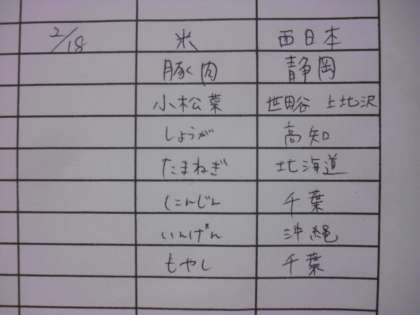 2/18 米 西日本
豚肉 静岡
小松菜 世田谷 上北沢
しょうが 高知
たまねぎ 北海道
にんじん 千葉
いんげん 沖縄
もやし 千葉